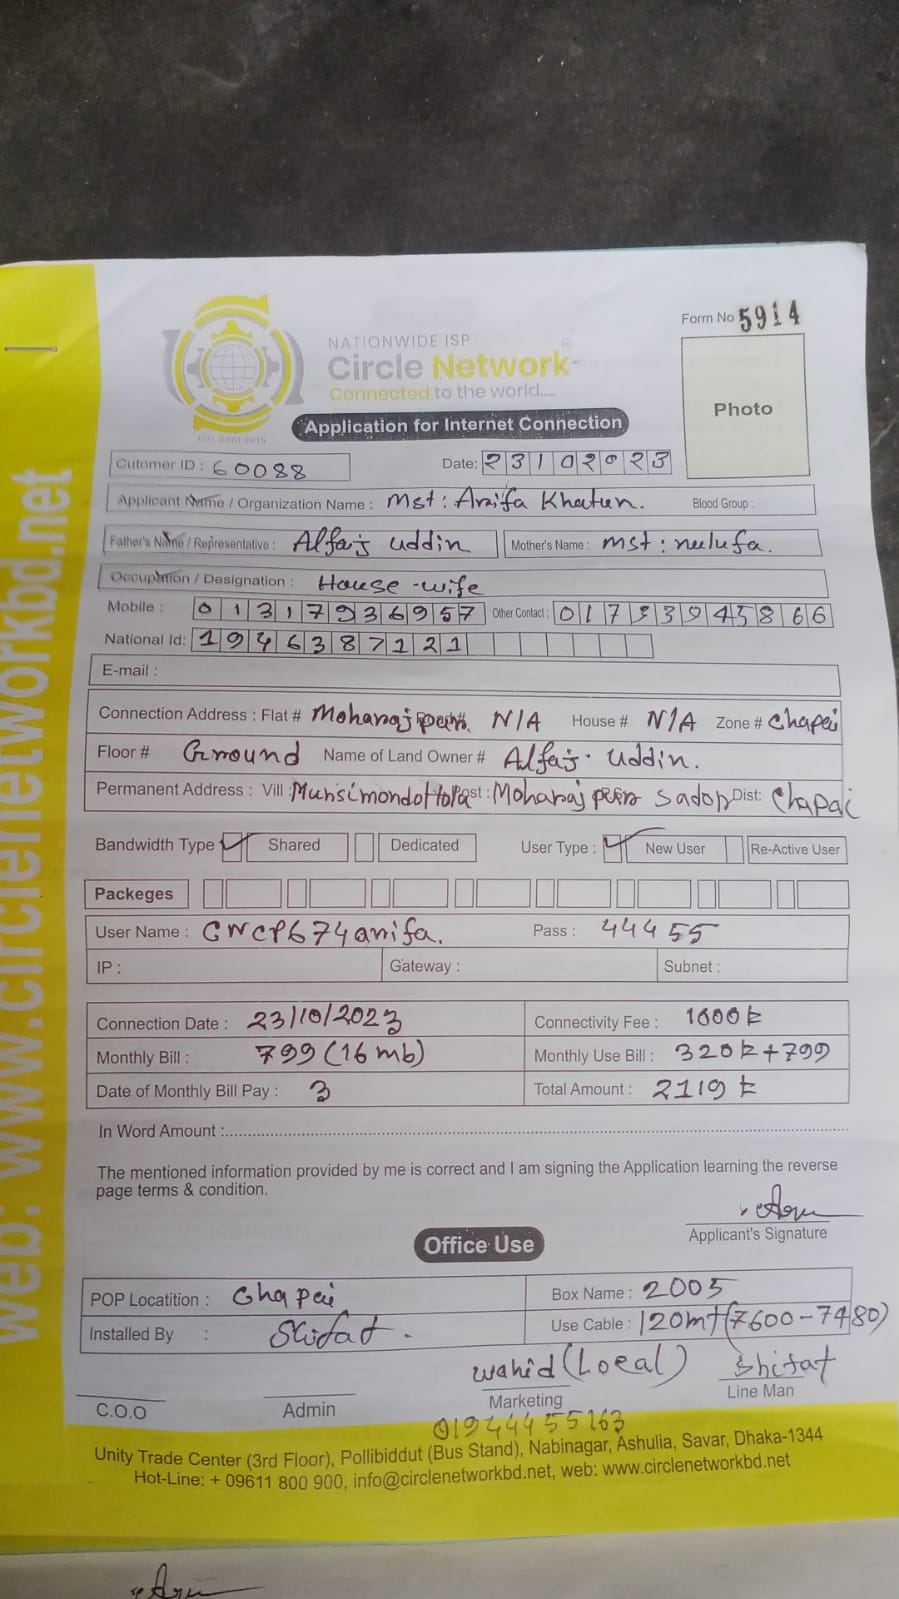 Form No 5914
NATIONWIDE ISP
Circle Network
Connected to the world.....
ISO 9001:2015
Photo
Application for Internet Connection
Cutomer ID : 60088 Date: 23102023
Applicant Name / Organization Name : Mst: Arifa Khatun. Blood Group :
Father's Name / Representative : Alfaj uddin Mother's Name : mst: nelufa.
Occupation / Designation : House-wife
Mobile : 01317936957 Other Contact : 017 3945866
National Id: 1946387121
E-mail :
Connection Address : Flat # Moharajpur. N/A House # N/A Zone # Chapai
Floor # Ground Name of Land Owner # Alfaj. Uddin.
Permanent Address : Vill : Munsimondottola Post : Moharajpur Sador Dist: Chapai
Bandwidth Type Shared Dedicated User Type : New User Re-Active User
Packeges
User Name : CNCP674arifa. Pass : 44455
IP : Gateway : Subnet :
Connection Date : 23/10/2023 Connectivity Fee : 1000 ৳
Monthly Bill : 799 (16 mb) Monthly Use Bill : 320 ৳ + 799
Date of Monthly Bill Pay : 3 Total Amount : 2119 ৳
In Word Amount :
The mentioned information provided by me is correct and I am signing the Application learning the reverse
page terms & condition.
Applicant's Signature
Office Use
POP Locatition : Chapai Box Name : 2005
Installed By : Shifat. Use Cable : 120mt (7600-7480)
wahid (Local) Shifat
C.O.O Admin Marketing Line Man
01944455163
Unity Trade Center (3rd Floor), Pollibiddut (Bus Stand), Nabinagar, Ashulia, Savar, Dhaka-1344
Hot-Line: + 09611 800 900, info@circlenetworkbd.net, web: www.circlenetworkbd.net
web: www.circlenetworkbd.net